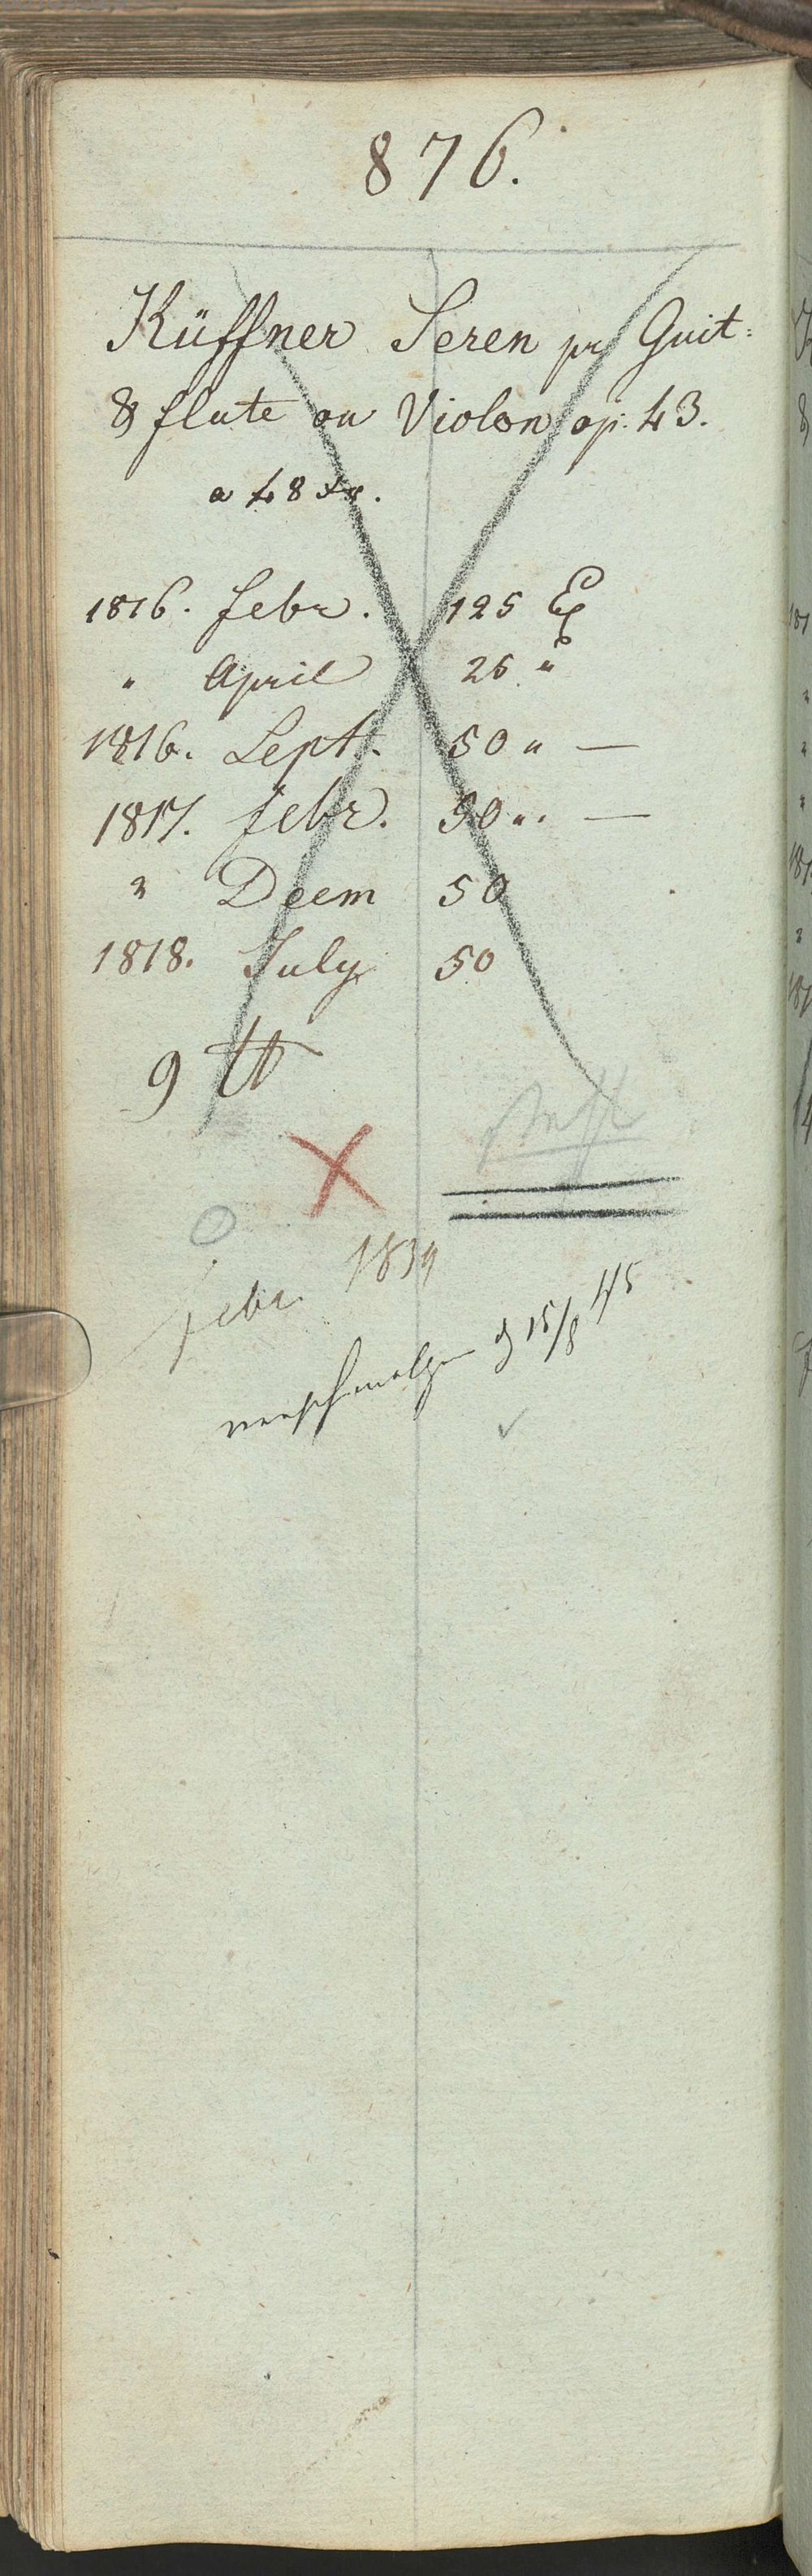 876.
Küffner Seren pr Guit:
& flute ou Violon op: 43.
a 48 xr.
1816. febr. 125 Ex
" April 25 "
1816. Sept. 50 " —
1817. febr. 50 " . —
" Decm 50
1818. July 50
9 tt
X
febr. 1839
verschmolzen d 15/8 45